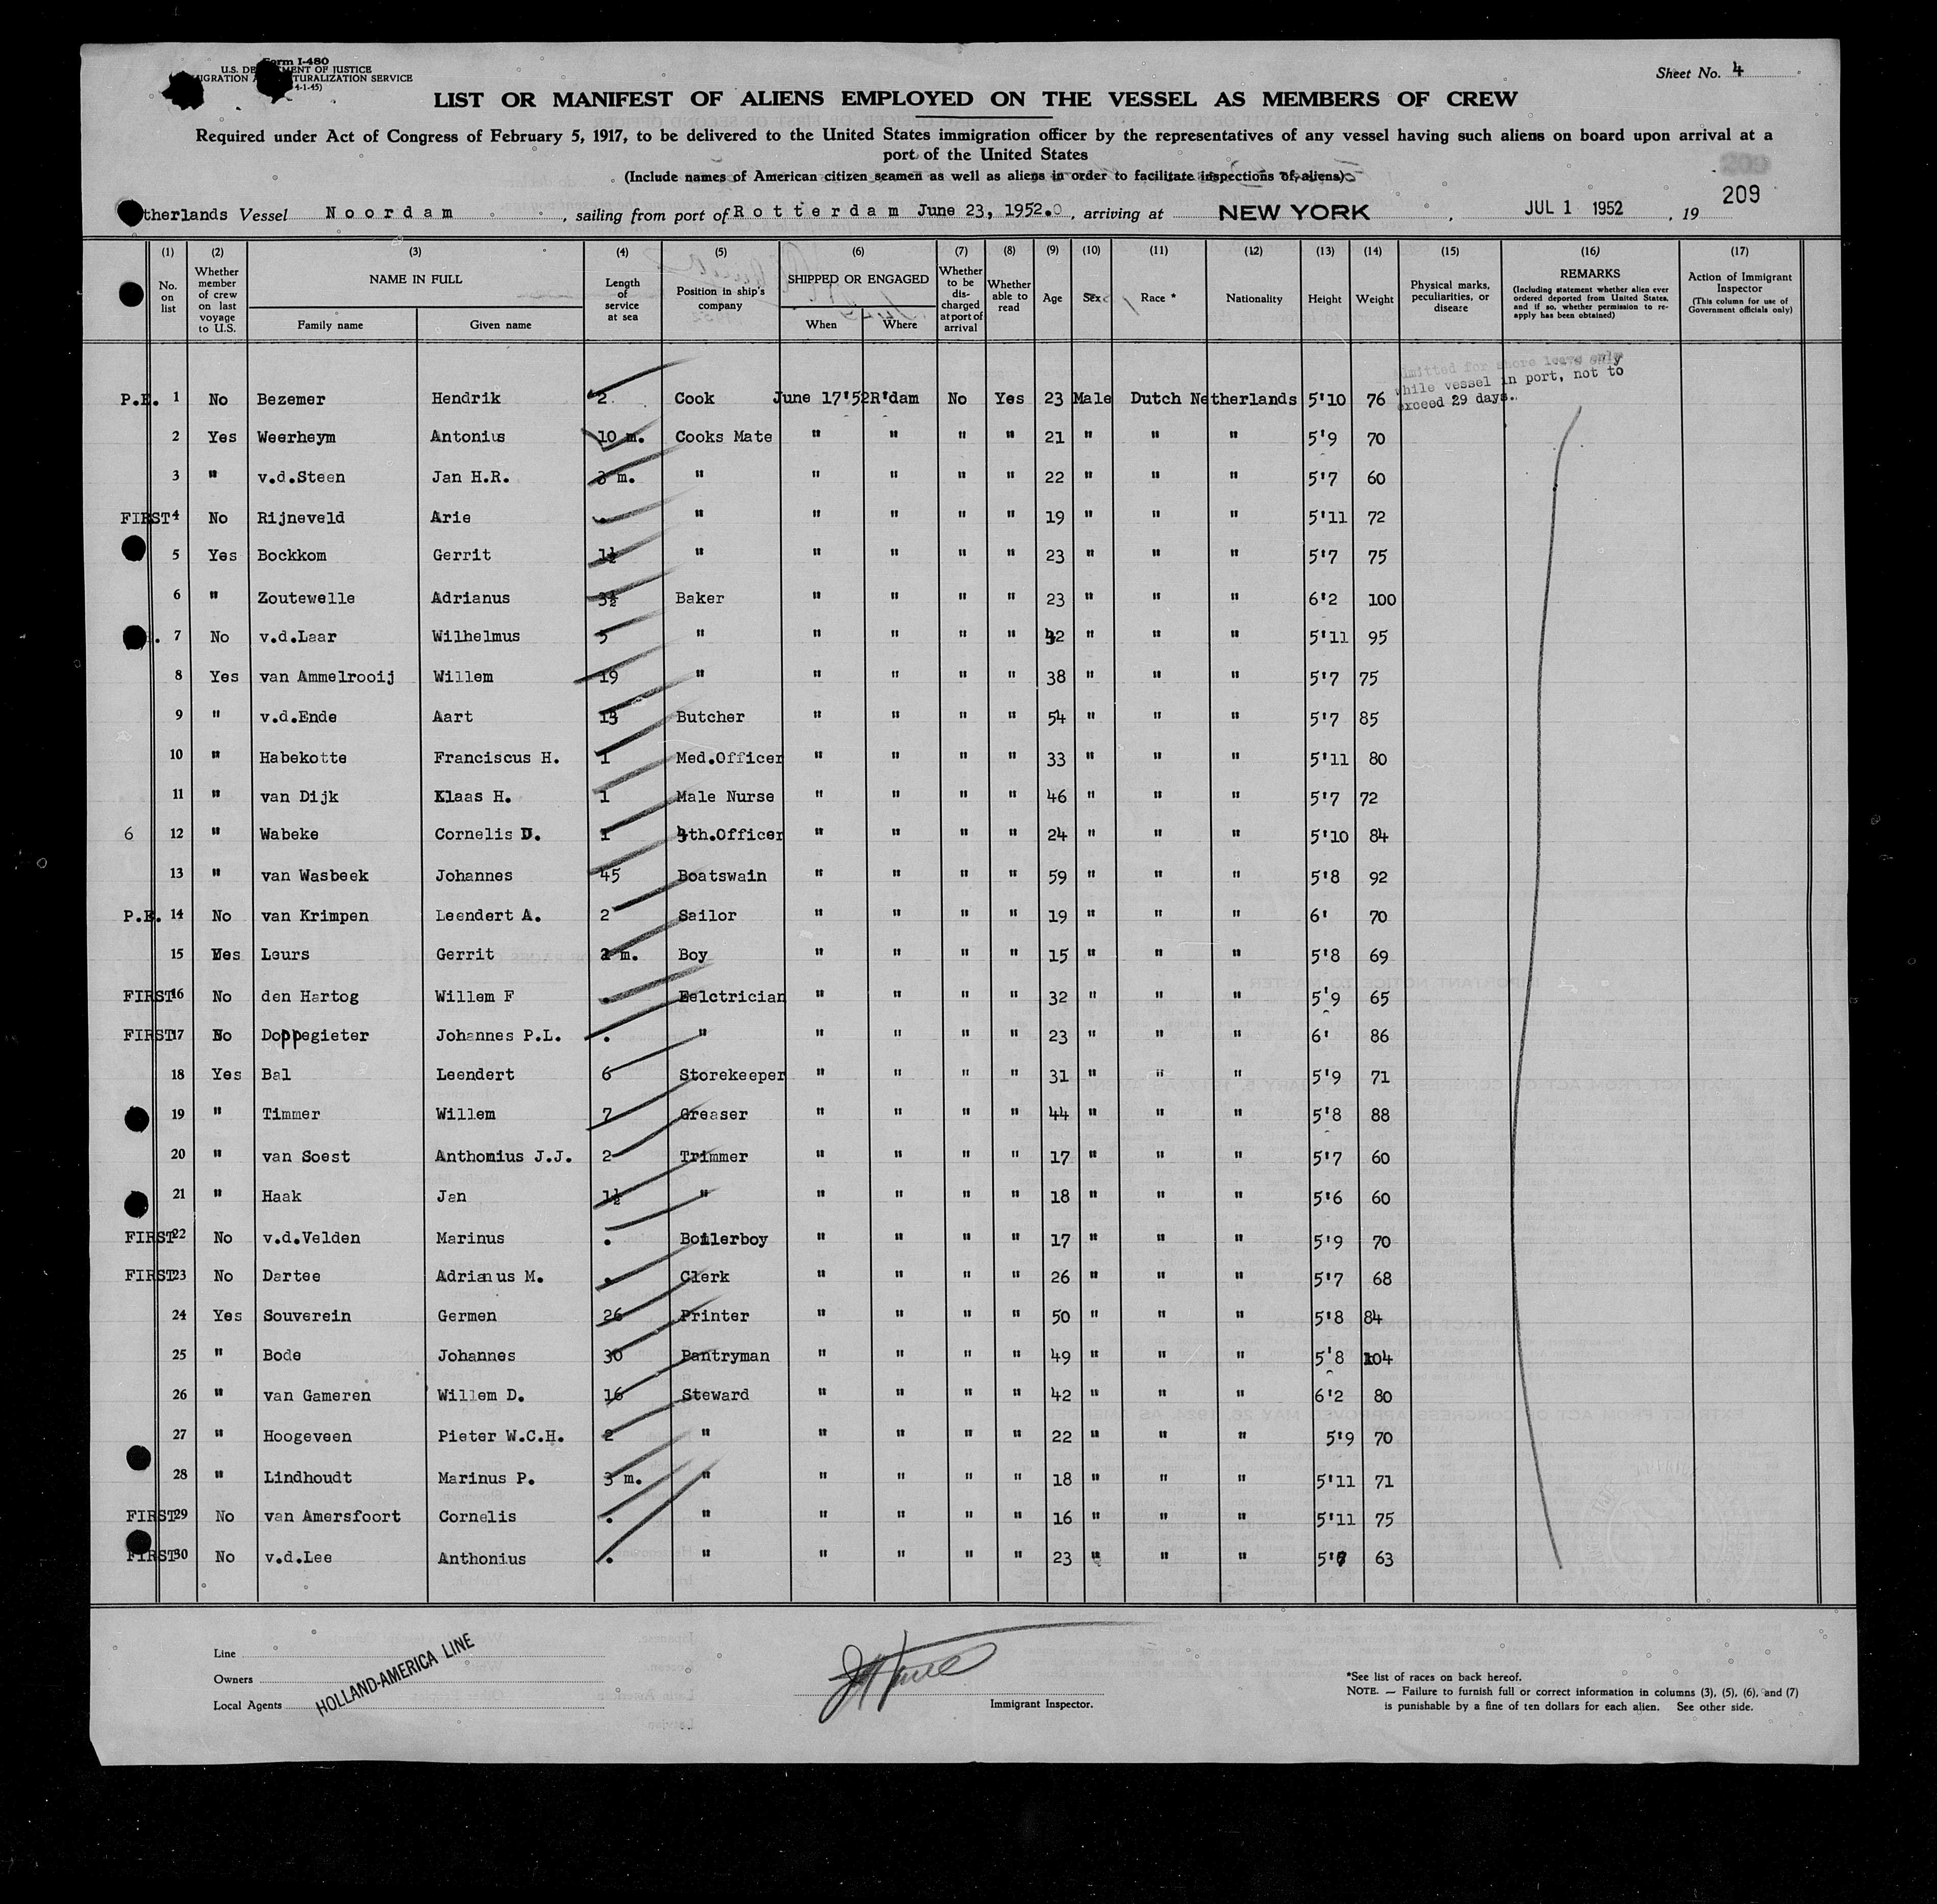 Form I-480
U.S. DE MENT OF JUSTICE
IGRATION A TURALIZATION SERVICE
4-1-45)
Sheet No. 4
LIST OR MANIFEST OF ALIENS EMPLOYED ON THE VESSEL AS MEMBERS OF CREW
Required under Act of Congress of February 5, 1917, to be delivered to the United States immigration officer by the representatives of any vessel having such aliens on board upon arrival at a
port of the United States
(Include names of American citizen seamen as well as aliens in order to facilitate inspections of aliens)
209
therlands Vessel Noordam , sailing from port of Rotterdam June 23, 1952. , arriving at NEW YORK , JUL 1 1952 , 19
(1) (2) (3) (4) (5) (6) (7) (8) (9) (10) (11) (12) (13) (14) (15) (16) (17)
No. on list
Whether member of crew on last voyage to U.S.
NAME IN FULL
Family name Given name
Length of service at sea
Position in ship's company
SHIPPED OR ENGAGED
When Where
Whether to be discharged at port of arrival
Whether able to read
Age Sex Race * Nationality Height Weight
Physical marks, peculiarities, or disease
REMARKS
(Including statement whether alien ever ordered deported from United States, and if so, whether permission to re-apply has been obtained)
Action of Immigrant Inspector
(This column for use of Government officials only)
Admitted for shore leave only
while vessel in port, not to
exceed 29 days.
P.E. 1 No Bezemer Hendrik 2 Cook June 17'52 R'dam No Yes 23 Male Dutch Netherlands 5'10 76
2 Yes Weerheym Antonius 10 m. Cooks Mate " " " " 21 " " " 5'9 70
3 " v.d.Steen Jan H.R. 3 m. " " " " " 22 " " " 5'7 60
FIRST 4 No Rijneveld Arie . " " " " " 19 " " " 5'11 72
5 Yes Bockkom Gerrit 1½ " " " " " 23 " " " 5'7 75
6 " Zoutewelle Adrianus 3½ Baker " " " " 23 " " " 6'2 100
7 No v.d.Laar Wilhelmus 5 " " " " " 32 " " " 5'11 95
8 Yes van Ammelrooij Willem 19 " " " " " 38 " " " 5'7 75
9 " v.d.Ende Aart 13 Butcher " " " " 54 " " " 5'7 85
10 " Habekotte Franciscus H. 1 Med.Officer " " " " 33 " " " 5'11 80
11 " van Dijk Klaas H. 1 Male Nurse " " " " 46 " " " 5'7 72
6 12 " Wabeke Cornelis D. 1 4th.Officer " " " " 24 " " " 5'10 84
13 " van Wasbeek Johannes 45 Boatswain " " " " 59 " " " 5'8 92
P.E. 14 No van Krimpen Leendert A. 2 Sailor " " " " 19 " " " 6' 70
15 Yes Leurs Gerrit 2 m. Boy " " " " 15 " " " 5'8 69
FIRST 16 No den Hartog Willem F . Eelctrician " " " " 32 " " " 5'9 65
FIRST 17 No Doppegieter Johannes P.L. . " " " " " 23 " " " 6' 86
18 Yes Bal Leendert 6 Storekeeper " " " " 31 " " " 5'9 71
19 " Timmer Willem 7 Greaser " " " " 44 " " " 5'8 88
20 " van Soest Anthonius J.J. 2 Trimmer " " " " 17 " " " 5'7 60
21 " Haak Jan 1½ " " " " " 18 " " " 5'6 60
FIRST 22 No v.d.Velden Marinus . Boilerboy " " " " 17 " " " 5'9 70
FIRST 23 No Dartee Adrianus M. . Clerk " " " " 26 " " " 5'7 68
24 Yes Souverein Germen 26 Printer " " " " 50 " " " 5'8 84
25 " Bode Johannes 30 Pantryman " " " " 49 " " " 5'8 104
26 " van Gameren Willem D. 16 Steward " " " " 42 " " " 6'2 80
27 " Hoogeveen Pieter W.C.H. 2 " " " " " 22 " " " 5'9 70
28 " Lindhoudt Marinus P. 3 m. " " " " " 18 " " " 5'11 71
FIRST 29 No van Amersfoort Cornelis . " " " " " 16 " " " 5'11 75
FIRST 30 No v.d.Lee Anthonius . " " " " " 23 " " " 63
Line
Owners
Local Agents
HOLLAND-AMERICA LINE
Immigrant Inspector.
*See list of races on back hereof.
NOTE. — Failure to furnish full or correct information in columns (3), (5), (6), and (7)
is punishable by a fine of ten dollars for each alien. See other side.